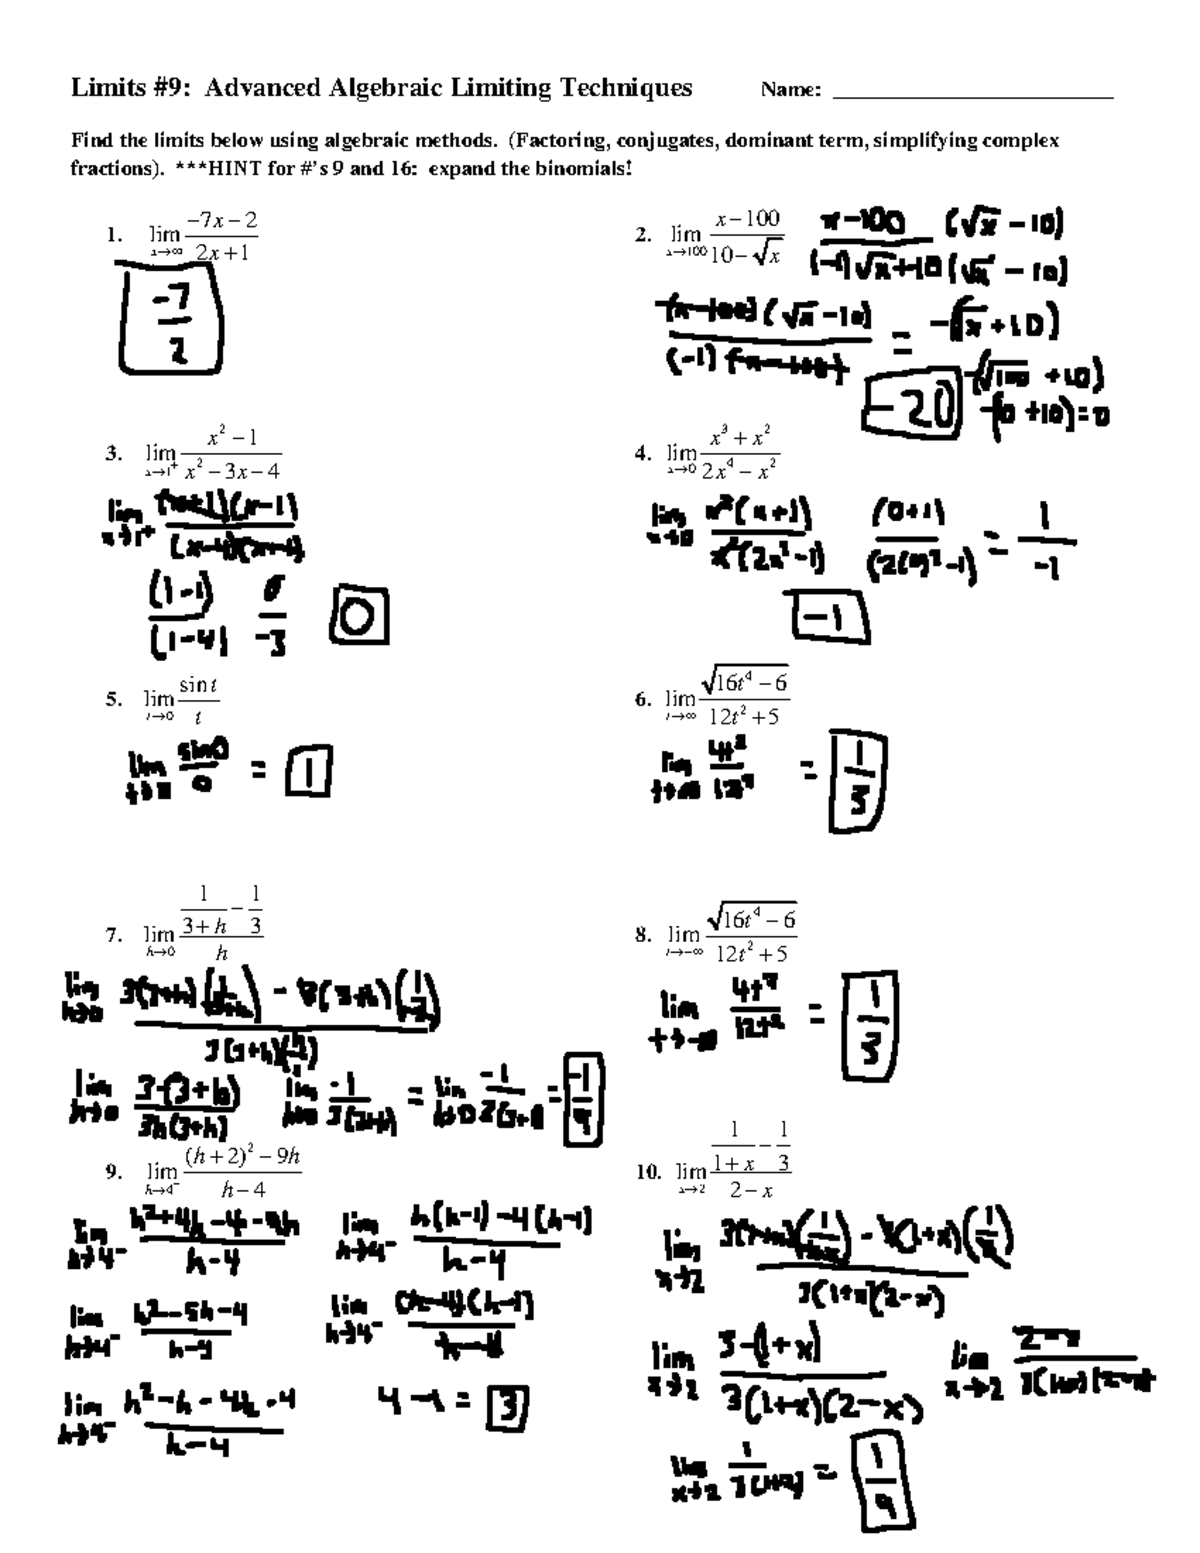 Limits #9: Advanced Algebraic Limiting Techniques Name: ____________
Find the limits below using algebraic methods. (Factoring, conjugates, dominant term, simplifying complex
fractions). ***HINT for #'s 9 and 16: expand the binomials!
1. lim x→∞ (−7x − 2)/(2x + 1)
−7/2
2. lim x→100 (x − 100)/(10 − √x)
x−100 (√x − 10)
(−1)√x+10 (√x − 10)
(x−100)(√x −10)/(−1)(x−100) = −(√x +10)
−(√100 +10)
−20
−(0 +10)=0
3. lim x→1⁺ (x² − 1)/(x² − 3x − 4)
lim x→1⁺ (x+1)(x−1)/(x−4)(x+1)
(1−1)/(1−4) 0/−3 0
4. lim x→0 (x³ + x²)/(2x⁴ − x²)
lim x→0 x²(x+1)/x²(2x²−1) (0+1)/(2(0)²−1) = 1/−1
−1
5. lim t→0 sin t/t
lim t→0 sin0/0 = 1
6. lim t→∞ √(16t⁴ − 6)/(12t² + 5)
lim t→∞ 4t²/12t² = 1/3
7. lim h→0 (1/(3 + h) − 1/3)/h
lim h→0 3(3+h)(1/(3+h)) − 3(3+h)(1/3)
3(3+h)(h)
lim h→0 3−(3+h)/3h(3+h) lim h→0 −1/3(3+h) = lim h→0 −1/3(3+ = −1/9
8. lim t→−∞ √(16t⁴ − 6)/(12t² + 5)
lim t→−∞ 4t²/12t² = 1/3
9. lim h→4⁻ ((h + 2)² − 9h)/(h − 4)
lim h→4⁻ h²+4h−4−9h/h−4
lim h→4⁻ h(h−1)−4(h−1)/h−4
lim h→4⁻ h²−5h−4/h−4
lim h→4⁻ (h−4)(h−1)/h−4
lim h→4⁻ h²−h−4h−4/h−4
4−1= 3
10. lim x→2 (1/(1 + x) − 1/3)/(2 − x)
lim x→2 3(1+x)(1/(1+x)) − 3(1+x)(1/3)
3(1+x)(2−x)
lim x→2 3−(1+x)/3(1+x)(2−x) lim x→2 2−x/3(1+x)(2−x)
lim x→2 1/3(1+2) = 1/9